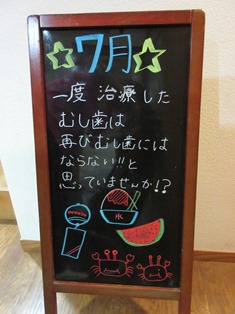 ☆7月☆
一度 治療した
むし歯は
再びむし歯には
ならない!!と
思っていませんか!?
氷